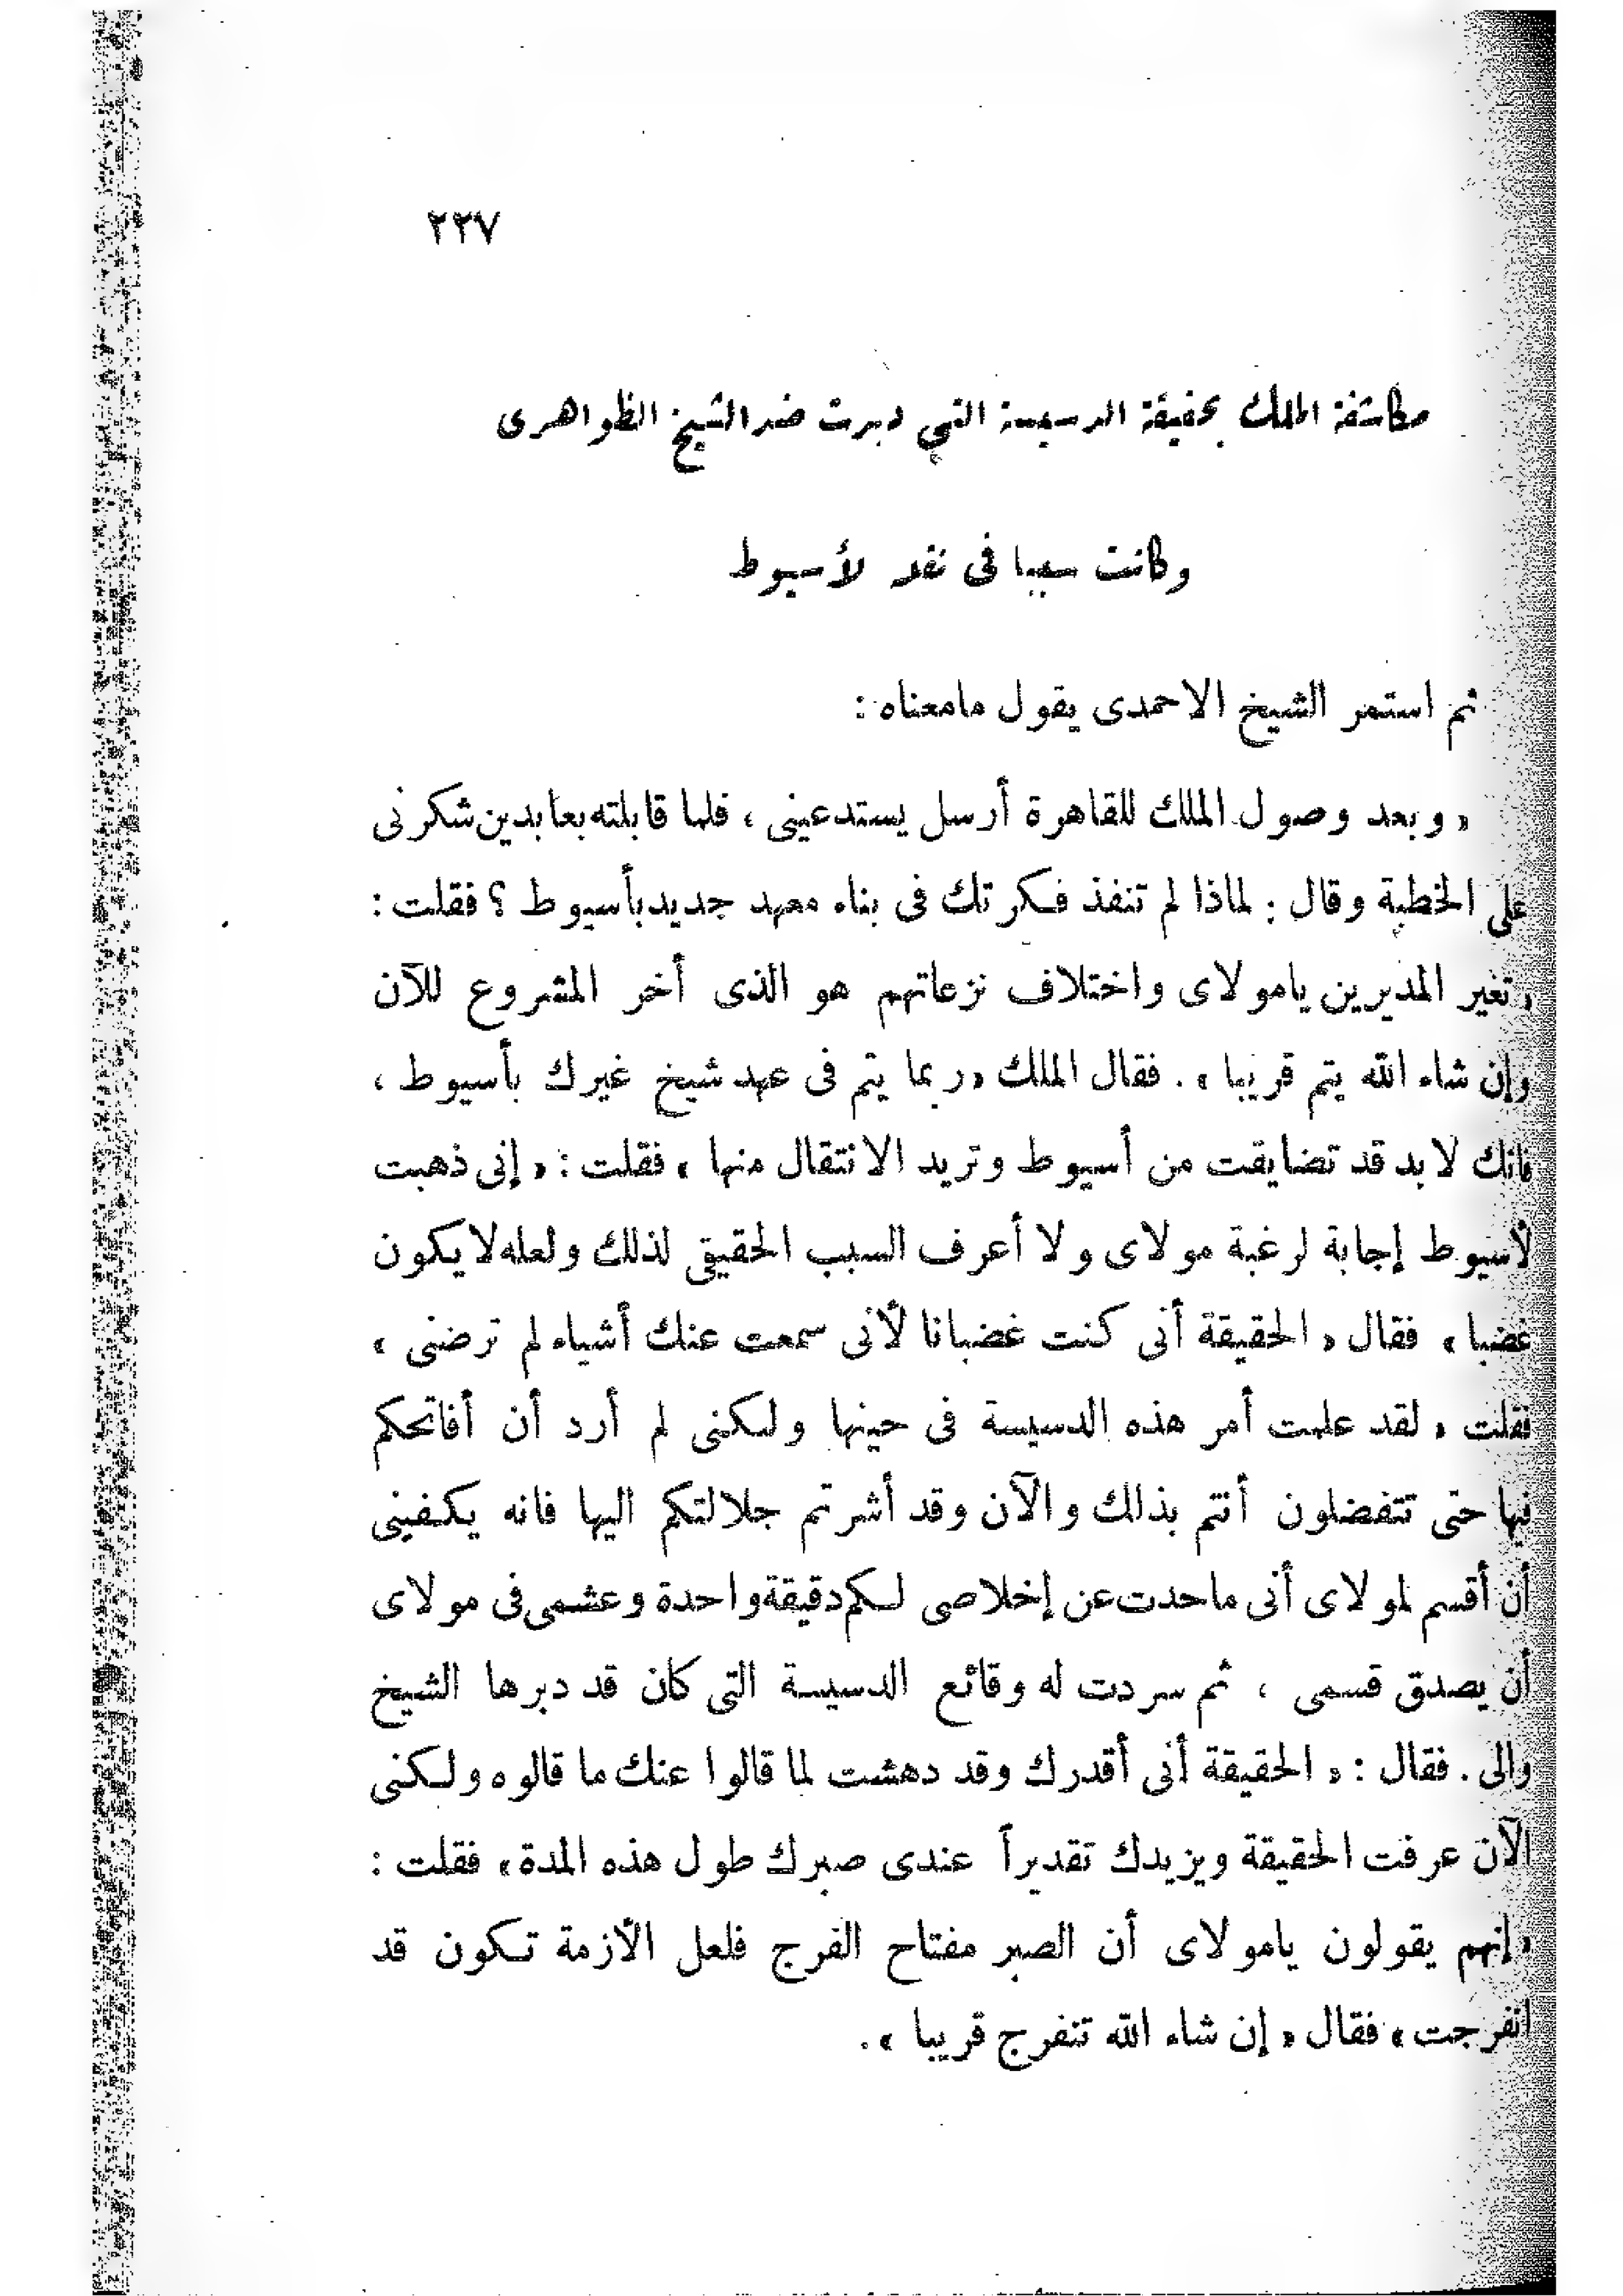 ٢٢٧
مكاشفة الملك بحقيقة الدسيسة التي دبرت ضد الشيخ الظواهرى
وكانت سببا فى نقله لأسيوط
ثم استمر الشيخ الاحمدى يقول مامعناه :
« وبعد وصول الملك للقاهرة أرسل يستدعينى ، فلما قابلته بعابدين شكرنى
على الخطبة وقال : لماذا لم تنفذ فكرتك فى بناء معهد جديد بأسيوط ؟ فقلت :
« تغير المديرين يامولاى واختلاف نزعاتهم هو الذى أخر المشروع للآن
وإن شاء الله يتم قريبا » . فقال الملك « ربما يتم فى عهد شيخ غيرك بأسيوط ،
فانك لابد قد تضايقت من أسيوط وتريد الانتقال منها » فقلت : « إنى ذهبت
لأسيوط إجابة لرغبة مولاى ولا أعرف السبب الحقيقى لذلك ولعله لا يكون
غضبا » فقال « الحقيقة أنى كنت غضبانا لأنى سمعت عنك أشياء لم ترضنى »
فقلت « لقد علمت أمر هذه الدسيسة فى حينها ولكنى لم أرد أن أفاتحكم
فيها حتى تتفضلون أنتم بذلك والآن وقد أشرتم جلالتكم اليها فانه يكفينى
أن أقسم لمولاى أنى ماحدت عن إخلاصى لكم دقيقة واحدة وعشمى فى مولاى
أن يصدق قسمى ، ثم سردت له وقائع الدسيسة التى كان قد دبرها الشيخ
والى . فقال : « الحقيقة أنى أقدرك وقد دهشت لما قالوا عنك ما قالوه ولكنى
الآن عرفت الحقيقة ويزيدك تقديراً عندى صبرك طول هذه المدة » فقلت :
« إنهم يقولون يامولاى أن الصبر مفتاح الفرج فلعل الأزمة تكون قد
انفرجت » فقال « إن شاء الله تنفرج قريبا » .